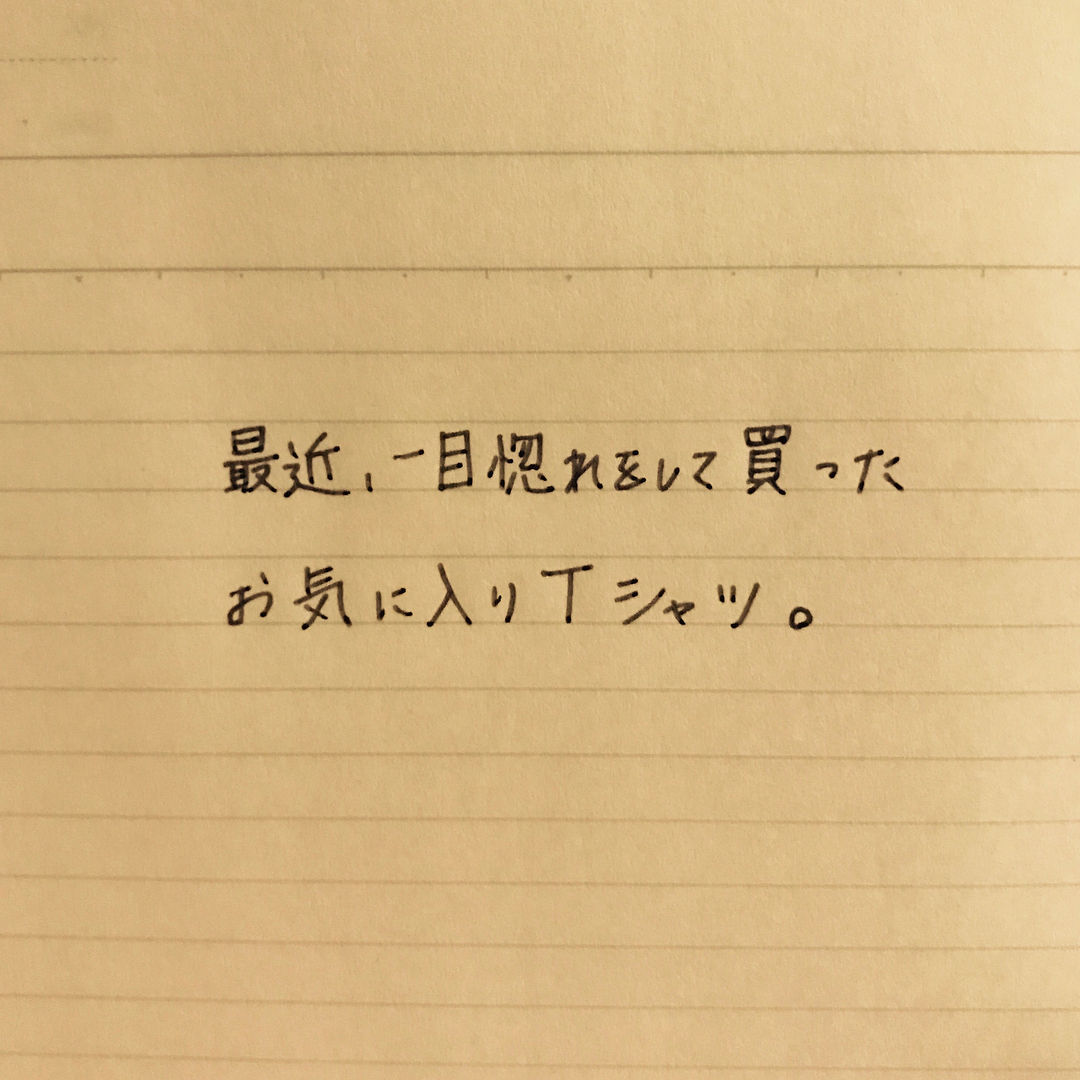 最近、一目惚れをして買った
お気に入りTシャツ。